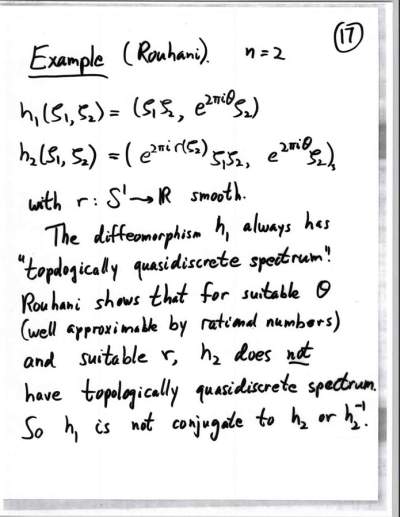 17
Example (Rouhani). n=2
h₁(ζ₁,ζ₂) = (ζ₁ζ₂, e^{2πiθ}ζ₂)
h₂(ζ₁,ζ₂) = (e^{2πi r(ζ₂)}ζ₁ζ₂, e^{2πiθ}ζ₂),
with r: S¹→ℝ smooth.
The diffeomorphism h₁ always has
"topologically quasidiscrete spectrum".
Rouhani shows that for suitable θ
(well approximable by rational numbers)
and suitable r, h₂ does not
have topologically quasidiscrete spectrum.
So h₁ is not conjugate to h₂ or h₂⁻¹.